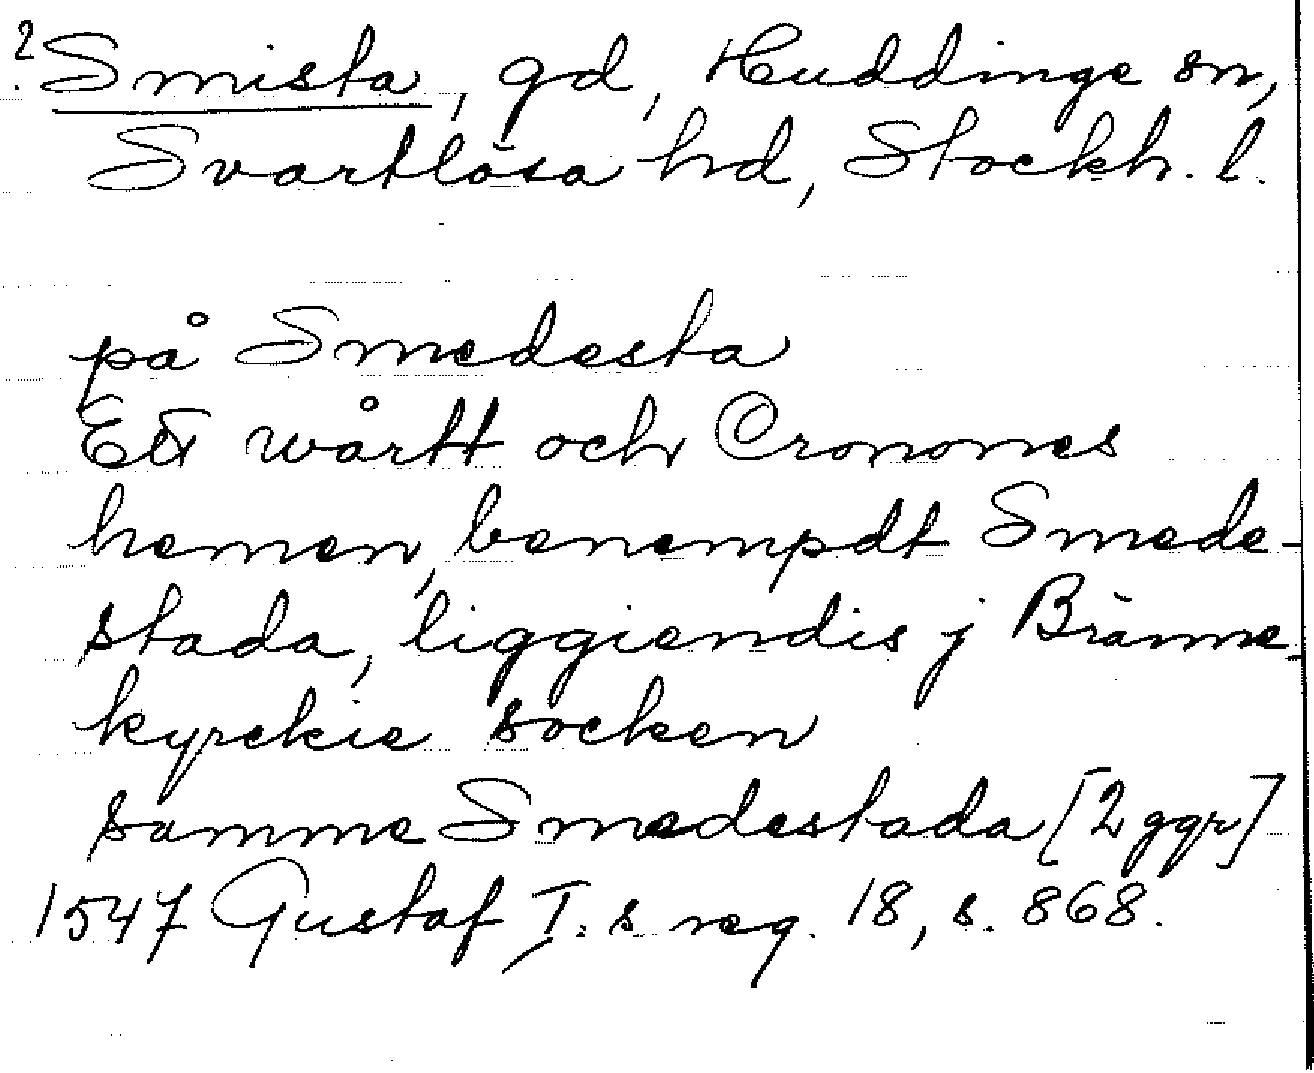 2. Smista, gd, Huddinge sn,
Svartlösa hd, Stockh. l.
på Smedesta
Ett wårtt och Cronones
hemen, benempdt Smede-
stada, liggiendis j Bränne-
kyrckie socken
samme Smedestada [2 ggr]
1547 Gustaf I:s reg. 18, s. 868.